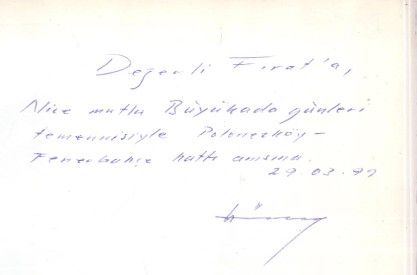 Değerli Fırat'a,
Nice mutlu Büyükada günleri
temennisiyle Polonezköy-
Fenerbahçe hattı anısına.
29.03.99